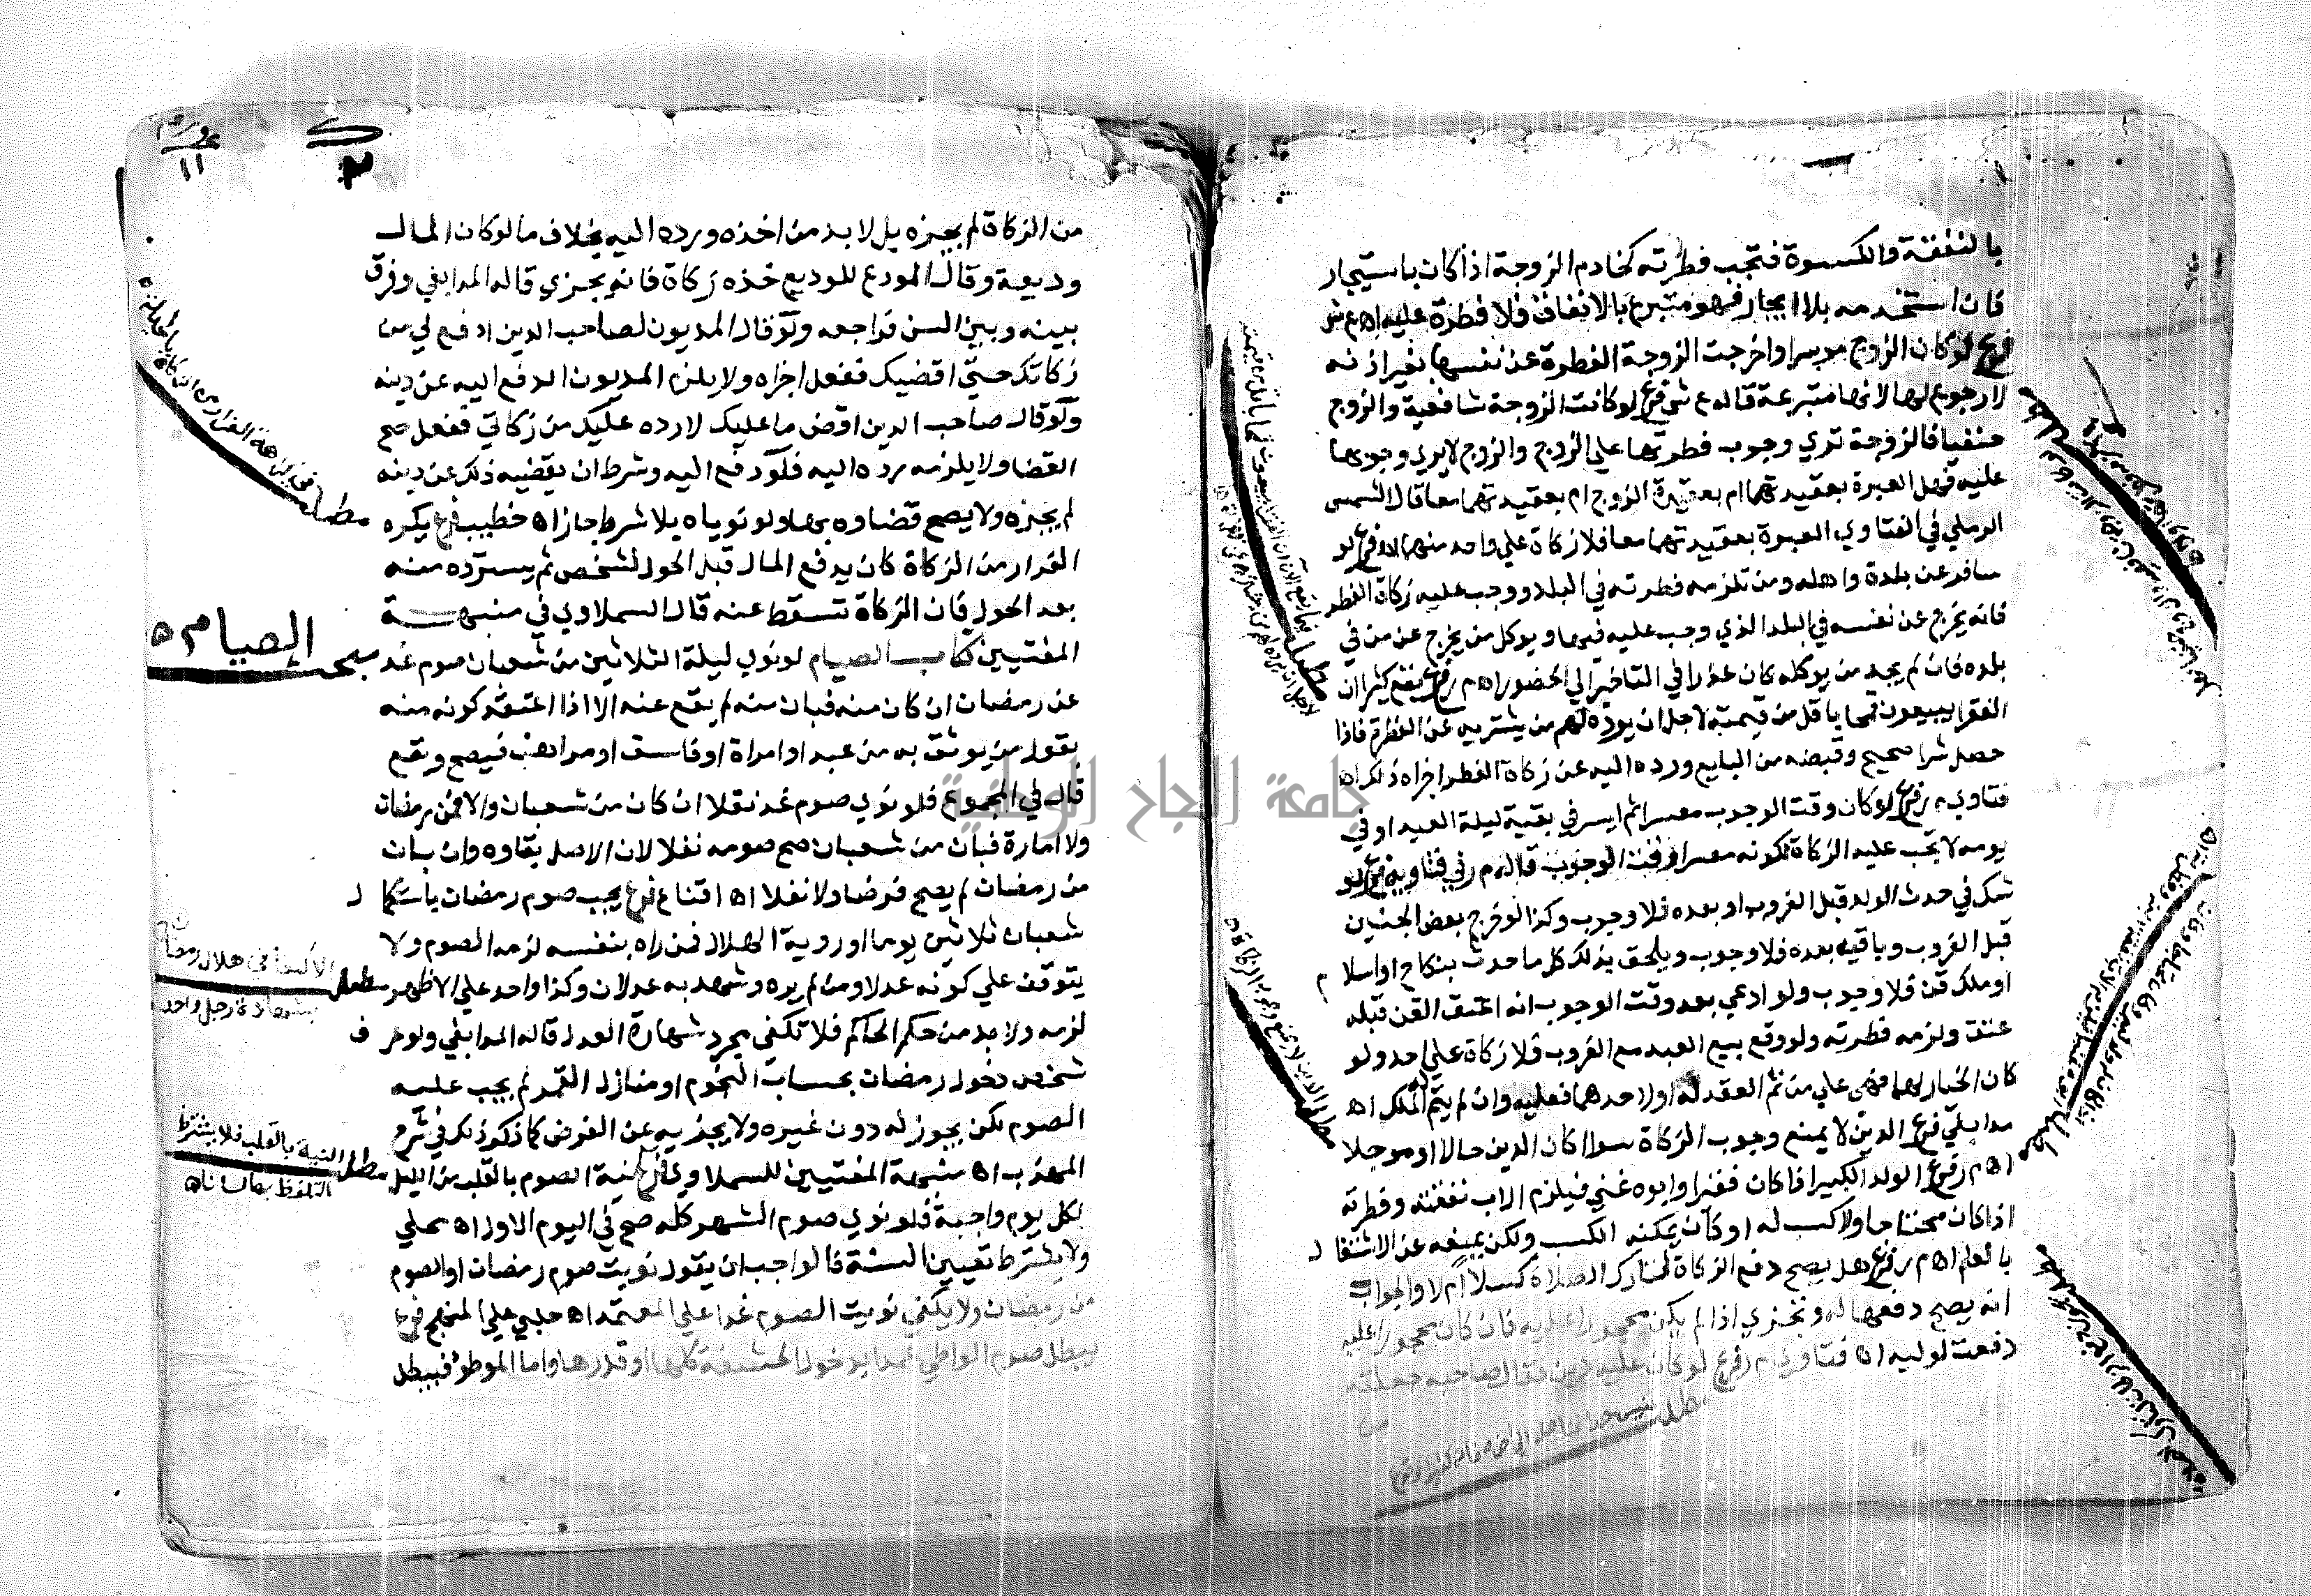 بالنفقة والكسوة فتجب فطرته كخادم الزوجة اذا كان باستيجار
فان استخدمه بلا ايجار فهو متبرع بالانفاق فلا فطرة عليه اه ع ش
فرع لو كان الزوج موسرا واخرجت الزوجة الفطرة عن نفسها بغير اذنه
لا رجوع لها لانها متبرعة قاله ع ش فرع لو كانت الزوجة شافعية والزوج
حنفيا فالزوجة تري وجوب فطرتها علي الزوج والزوج لا يري وجوبها
عليه فهل العبرة بعقيدتهما ام بعقيدة الزوج ام بعقيدتهما معا قال الشمس
الرملي في الفتاوي العبرة بعقيدتهما معا فلا زكاة علي واحد منهما اه فرع لو
سافر عن بلدة واهله ومن تلزمه فطرته في البلد ووجب عليه زكاة الفطر
فانه يخرج عن نفسه في البلد الذي وجب عليه فيها ويوكل من يخرج عن من في
بلده فان لم يجد من يوكله كان عذرا في التاخير الي الحضور اه م ر فرع يقع كثيرا ان
الفقرا يبيعون قمحا باقل من قيمته لاجل ان يورده لهم من يشتريه عن الفطرة فاذا
حصل شرا صحيح وقبضه من البايع ورده اليه عن زكاة الفطر اجزاه ذلك اه
فتاوي م ر فرع لو كان وقت الوجوب معسرا ثم ايسر في بقية ليلة العيد او في
يومه لا يجب عليه الزكاة لكونه معسرا وقت الوجوب قاله م ر في فتاويه فرع لو
شك في حدث الولد قبل الغروب او بعده فلا وجوب وكذا لو خرج بعض الجنين
قبل الغروب وباقيه بعده فلا وجوب ويلحق بذلك كل ما حدث بنكاح او اسلام
او ملك قن فلا وجوب ولو ادعي بعد وقت الوجوب انه اعتق القن قبله
عتق ولزمه فطرته ولو وقع بيع العبد مع الغروب فلا زكاة علي احد ولو
كان الخيار لهما فهي علي من تم العقد له او لاحدهما فعليه وان لم يتم الملك اه
مدابغي فرع الدين لا يمنع وجوب الزكاة سوا كان الدين حالا او موجلا
اه م ر فرع الولد الكبير اذا كان فقيرا وابوه غني فيلزم الاب نفقته وفطرته
اذا كان محتاجا ولا كسب له او كان يمكنه الكسب ولكن يمنعه عن الاشتغال
بالعلم اه م ر فرع هل يصح دفع الزكاة لتارك الصلاة كسلا ام لا والجواب
انه يصح دفعها له وتجزي اذا لم يكن محجورا عليه فان كان محجورا عليه
دفعت لوليه اه فتاوي م ر فرع لو كان عليه دين فقال صاحبه جعلته
من الزكاة لم يجزه بل لا بد من اخذه ورده اليه بخلاف ما لو كان المال
وديعة وقال المودع للوديع خذه زكاة فانه يجزي قاله المدابغي وفرق
بينه وبين السن فراجعه ولو قال المديون لصاحب الدين ادفع لي من
زكاتك حتي اقضيك ففعل اجزاه ولا يلزم المديون الدفع اليه عن دينه
ولو قال صاحب الدين اقض ما عليك لارده عليك من زكاتي ففعل صح
القضا ولا يلزمه رده اليه فلو دفع اليه وشرط ان يقضيه ذلك عن دينه
لم يجزه ولا يصح قضاوه بها ولو نوياه بلا شرط جاز اه خطيب فرع يكره
الفرار من الزكاة كان يدفع المال قبل الحول لشخص ثم يسترده منه
بعد الحول فان الزكاة تسقط عنه قال السملاوي في منبهة
المفتيين كتاب الصيام لو نوي ليلة الثلاثين من شعبان صوم غد
عن رمضان ان كان منه فبان منه لم يقع عنه الا اذا اعتقد كونه منه
بقول من يوثق به من عبد او امراة او فاسق او مراهق فيصح ويقع
قال في المجموع فلو نوي صوم غد نفلا ان كان من شعبان والا فمن رمضان
ولا امارة فبان من شعبان صح صومه نفلا لان الاصل بقاوه وان بان
من رمضان لم يصح فرضا ولا نفلا اه اقناع فرع يجب صوم رمضان باستكمال
شعبان ثلاثين يوما او روية الهلال فمن راه بنفسه لزمه الصوم ولا
يتوقف علي كونه عدلا ومن لم يره وشهد به عدلان وكذا واحد علي الاظهر
لزمه ولا بد من حكم الحاكم فلا تكفي مجرد شهادة العدل قاله المدابغي ولو عرف
شخص دخول رمضان بحساب النجوم او منازل القمر لم يجب عليه
الصوم لكن يجوز له دون غيره ولا يجزيه عن الفرض كما ذكر ذلك في شرح
المهذب اه منبهة المفتيين للسملاوي فرع نية الصوم بالقلب من الليل
لكل يوم واجبة فلو نوي صوم الشهر كله صح في اليوم الاول اه محلي
ولا يشترط تعيين السنة فالواجب ان يقول نويت صوم رمضان او الصوم
من رمضان ولا يكفي نويت الصوم غدا علي المعتمد اه حلبي علي المنهج فرع
يبطل صوم الواطي عمدا بدخول الحشفة كلها او قدرها واما الموطو فيبطل
مبحث الصيام
مطلب النية بالقلب فلا يشترط
التلفظ بها لسانا اه
ورقة
١١
٢
جامعة النجاح الوطنية